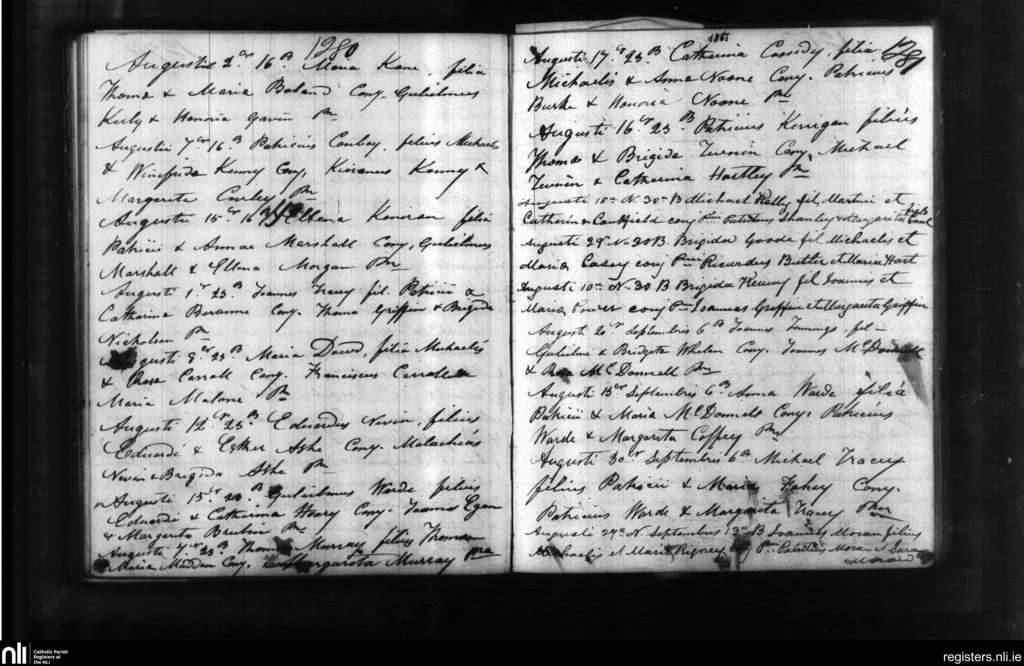 1280
Augusti 2 16 B Maria Kane, filia
Thoma & Maria Boland Conj. Gulielmus
Kiely & Honoria Gavin Prs
Augusti 7 16 B Patricius Conboy, filius Michaelis
& Winifrida Kenny Conj, Kieranus Kenny &
Margarita Curley Prs
Augusti 15 16 Ellena Konoran filia
Patricii & Annae Marshall Conj, Gulielmus
Marshall & Ellena Morgan Prs
Augusti 1 23 B Joannes Tracey fil. Patricii &
Catherina Conj. Thoma Griffin & Brigida
Nicholson Prs
Augusti 8 23 B Maria Dowd, filia Michaelis
& Rosa Carroll Conj. Franciscus Carroll &
Maria Malone Prs
Augusti 12 23 B Eduardus Nevin, filius
Eduardi & Esther Ashe Conj. Malachias
Nevin & Brigida Ashe Prs
Augusti 15 20 B Gulielmus Warde filius
Eduardi & Catharina Henry Conj. Joannes Egan
& Margarita Prs
Augusti 7 23 B Thomas Murray filius Thomae
Maria Madden Conj. Margarita Murray Prs
1861
1281
Augusti 17 23 B Catherina Cassedy, filia
Michaelis & Anna Noone Conj. Patricius
Burke & Honoria Noone Prs
Augusti 16 23 B Patricius Kerrigan filius
Thoma & Brigida Conj, Michael
& Catharina Hartley Prs
Augusti 18 N. 30 B Michael Kelly fil Martini et
Catherin Caulfield conj Prs Patricius et Margarita
Augusti 29 N. 30 B. Brigida Goode fil Michaelis et
Maria Casey conj Prs Ricardus Butler et Maria Hart
Augusti 10 N. 30 B Brigida Kenny fil Joannis et
Maria Power conj Prs Joannes Griffin et Margarita Griffin
Augusti 20 Septembris 6 B Joannes Jennings fil
Gulielmi & Bridgeta Whelan Conj. Joannes McDonnell
& Rose McDonnell Prs
Augusti 15 Septembris 6 B Anna Warde filia
Patricii & Maria McDonnell Conj. Patricius
Warde & Margarita Coffey Prs
Augusti 30 Septembris 6 B Michael Tracey
filius Patricii & Maria Fahey Conj.
Patricius Warde & Margarita Tracey Prs
Augusti 29 N. Septembris 13 B Joannes Moran filius
Michaelis et Maria Rigney conj Prs Patricius Moran et Sara
nli Catholic Parish
Registers at
the NLI
registers.nli.ie